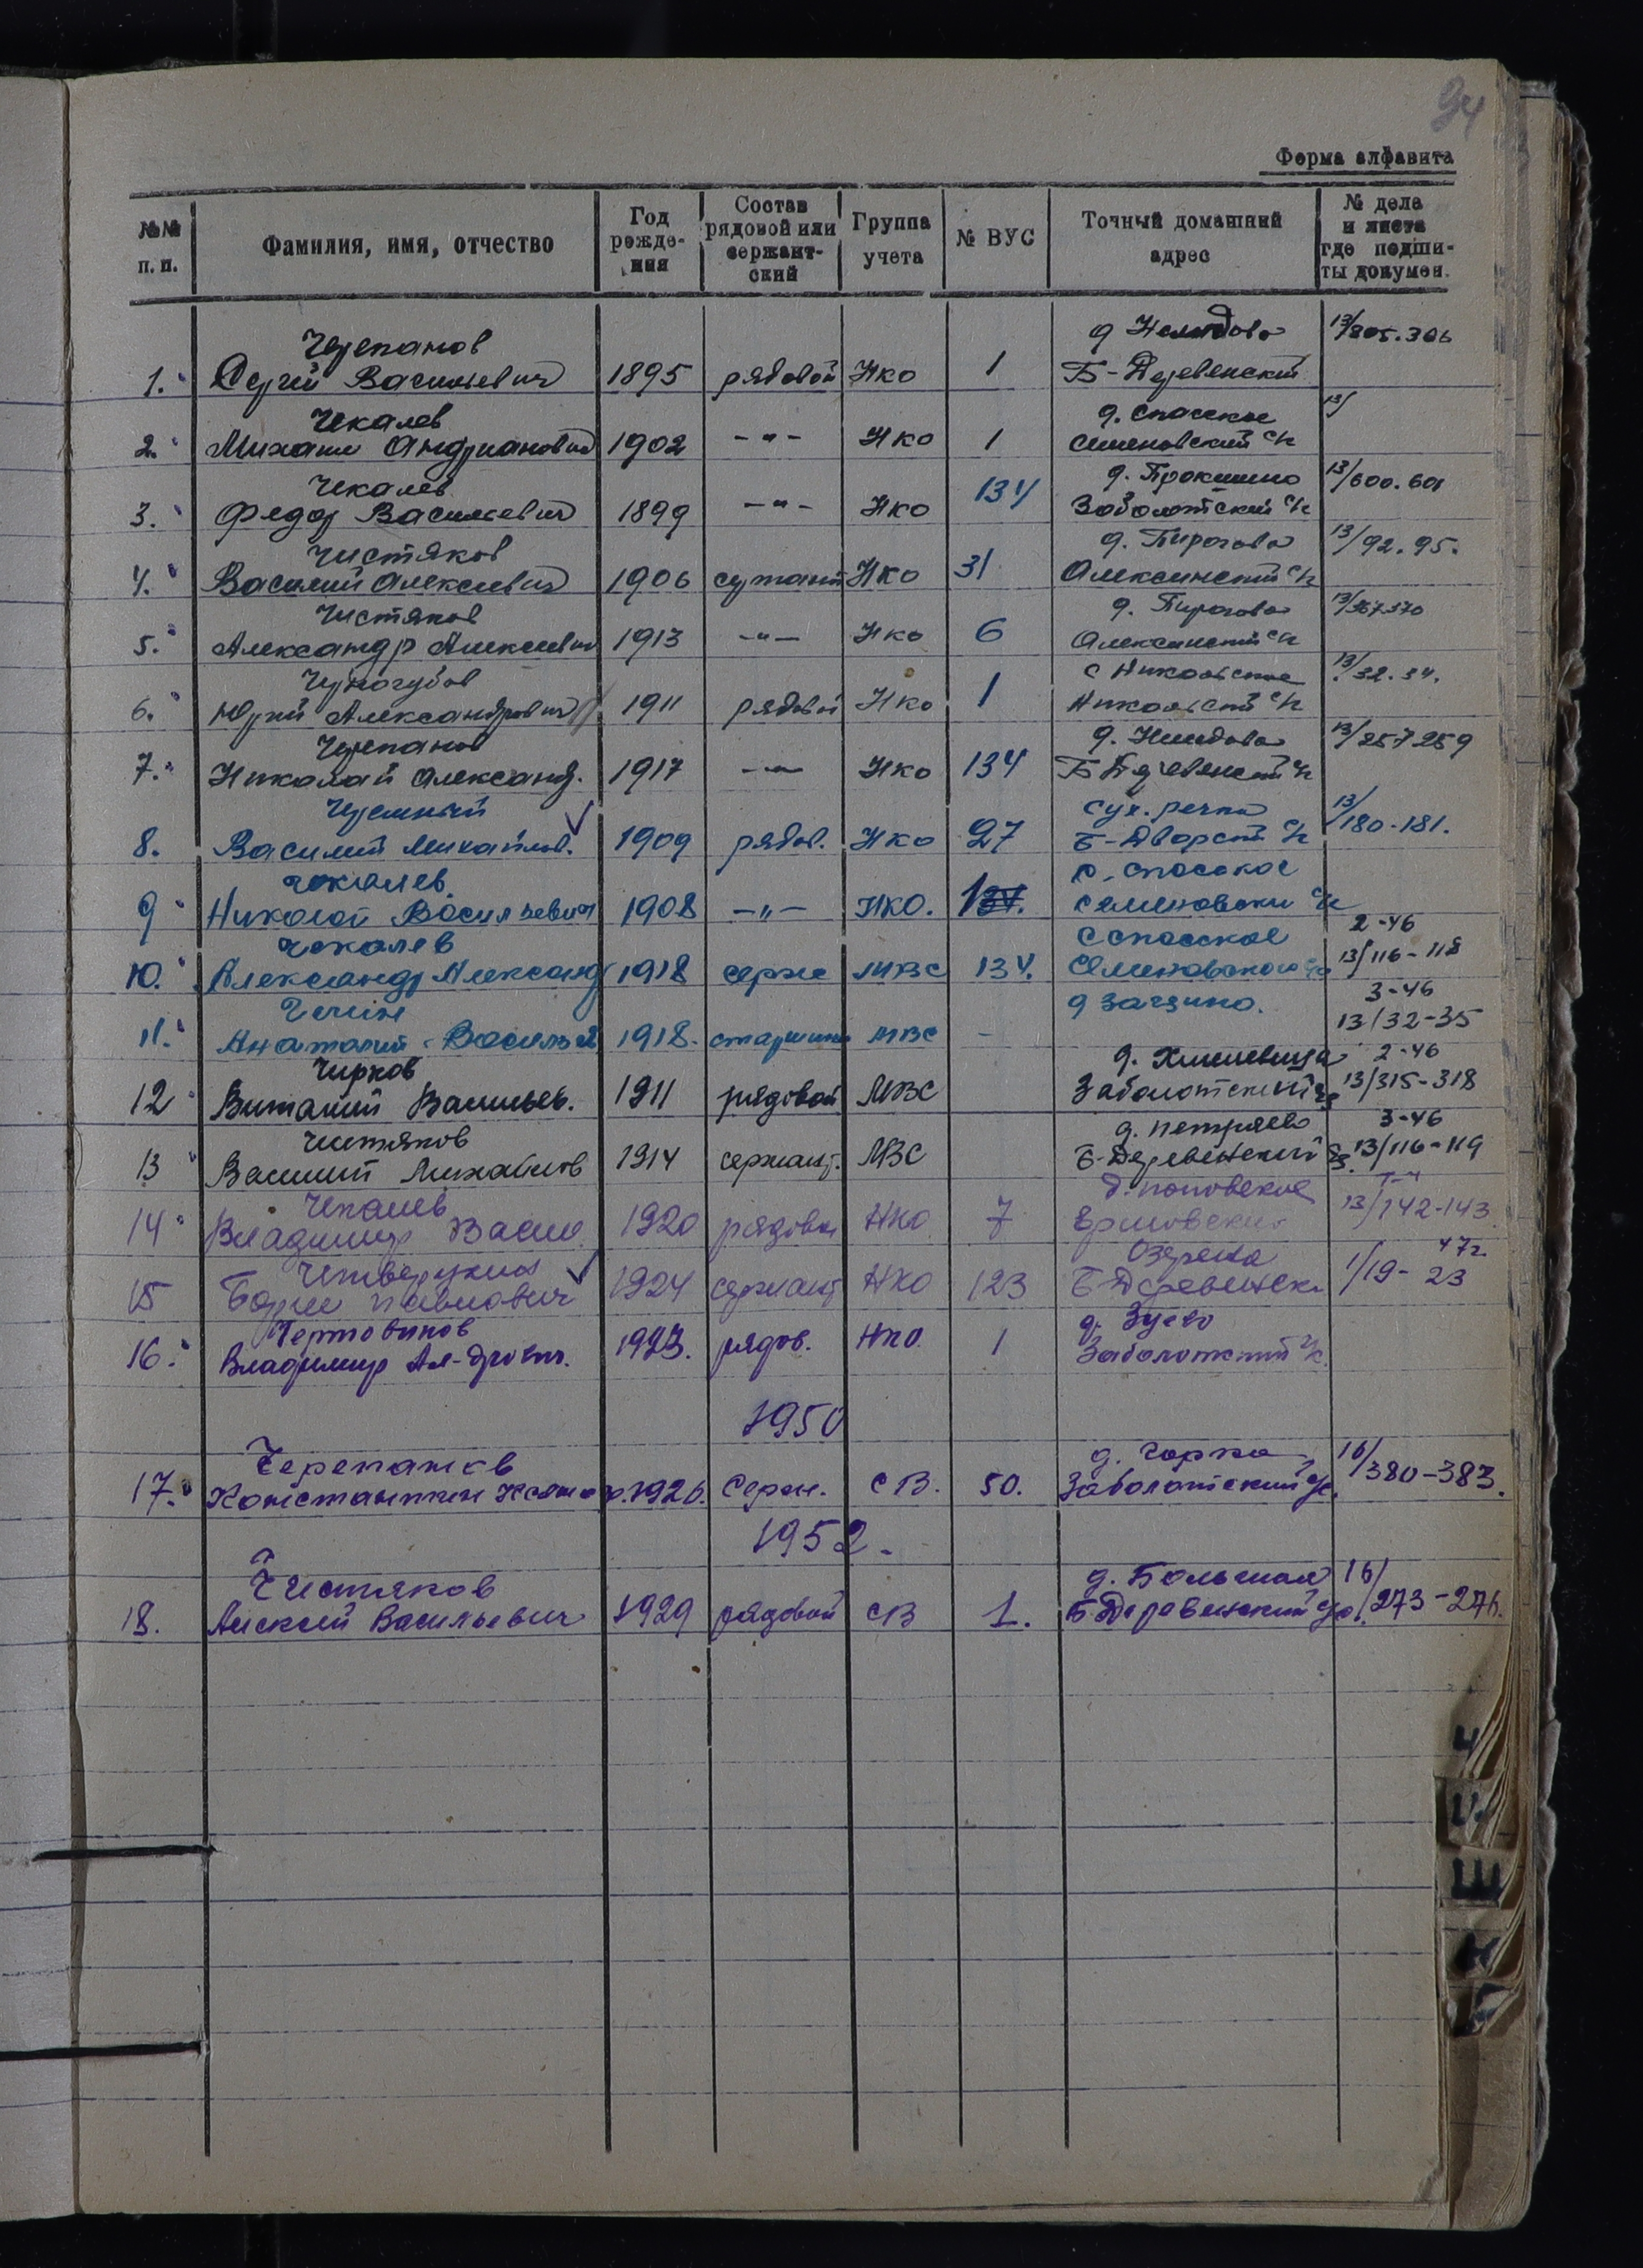 94
Форма алфавита
№№ п. п. Фамилия, имя, отчество Год рожде-ния Состав рядовой или сержант-ский Группа учета № ВУС Точный домашний адрес № дела и листа где подши-ты докумен.
Черепанов д Нелидово 13/305.306
1. Сергей Васильевич 1895 рядовой НКО 1 Б-Деревенский
Чекалев д. Спасское 13/
2. Михаил Андрианович 1902 -"- НКО 1 Семеновский с/с
Чекалев д. Прокшино 13/600.601
3. Федор Васильевич 1899 -"- НКО 134 Заболотский с/с
Чистяков д. Пирогово 13/92.95.
4. Василий Алексеевич 1906 сержант НКО 31 Алексинский с/с
Чистяков д. Пирогово
5. Александр Алексеевич 1913 -"- НКО 6 Алексинский с/с
Черногубов с Никольское 13/32.34.
6. Юрий Александрович 1911 рядовой НКО 1 Никольский с/с
Черепанов д. Нелидово 13/257259
7. Николай Александ. 1917 -"- НКО 134 Б Деревенский с/с
Сух. речка 13/180-181.
8. Василий Михайлов. 1909 рядов. НКО 27 Б-Дворский с/с
Чекалев с. Спасское
9 Николай Васильевич 1908 -"- НКО. Семеновский с/с
Чекалев с Спасское 2-46
10. Александр Александ 1918 серж МВС 134. Семеновского с/с 13/116-118
д Зачзино. 3-46
11. Анатолий Васильев 1918. старшина МВС - 13/32-35
Чирков д. 2-46
12 Виталий Васильев. 1911 рядовой МВС Заболотский с/с 13/315-318
Чистяков д. Петряево 3-46
13 Василий Михайлов 1914 сержант. МВС Б-Деревенский с/с. 13/116-119
Чекалев д. Поповское
14 Владимир Васил 1920 рядовой НКО 7 Ермовский 13/142-143
Четверухин Озерела 47г.
15 Борис Павлович 1924 сержант НКО 123 Б Деревенски 1/19-23
д. Зуево
16. Владимир Ал-дрович. 1923. рядов. НКО. 1 Заболотский с/с.
1950
Черепанов д. Горка 16/380-383.
17. Константин 1926. Серж. СВ. 50. Заболотский с/с.
1952.
Чистяков д. Большая 16/273-276.
18. Алексей Васильевич 1929 рядовой СВ 1. Б-Деревенский с/с.
Ч
Ш